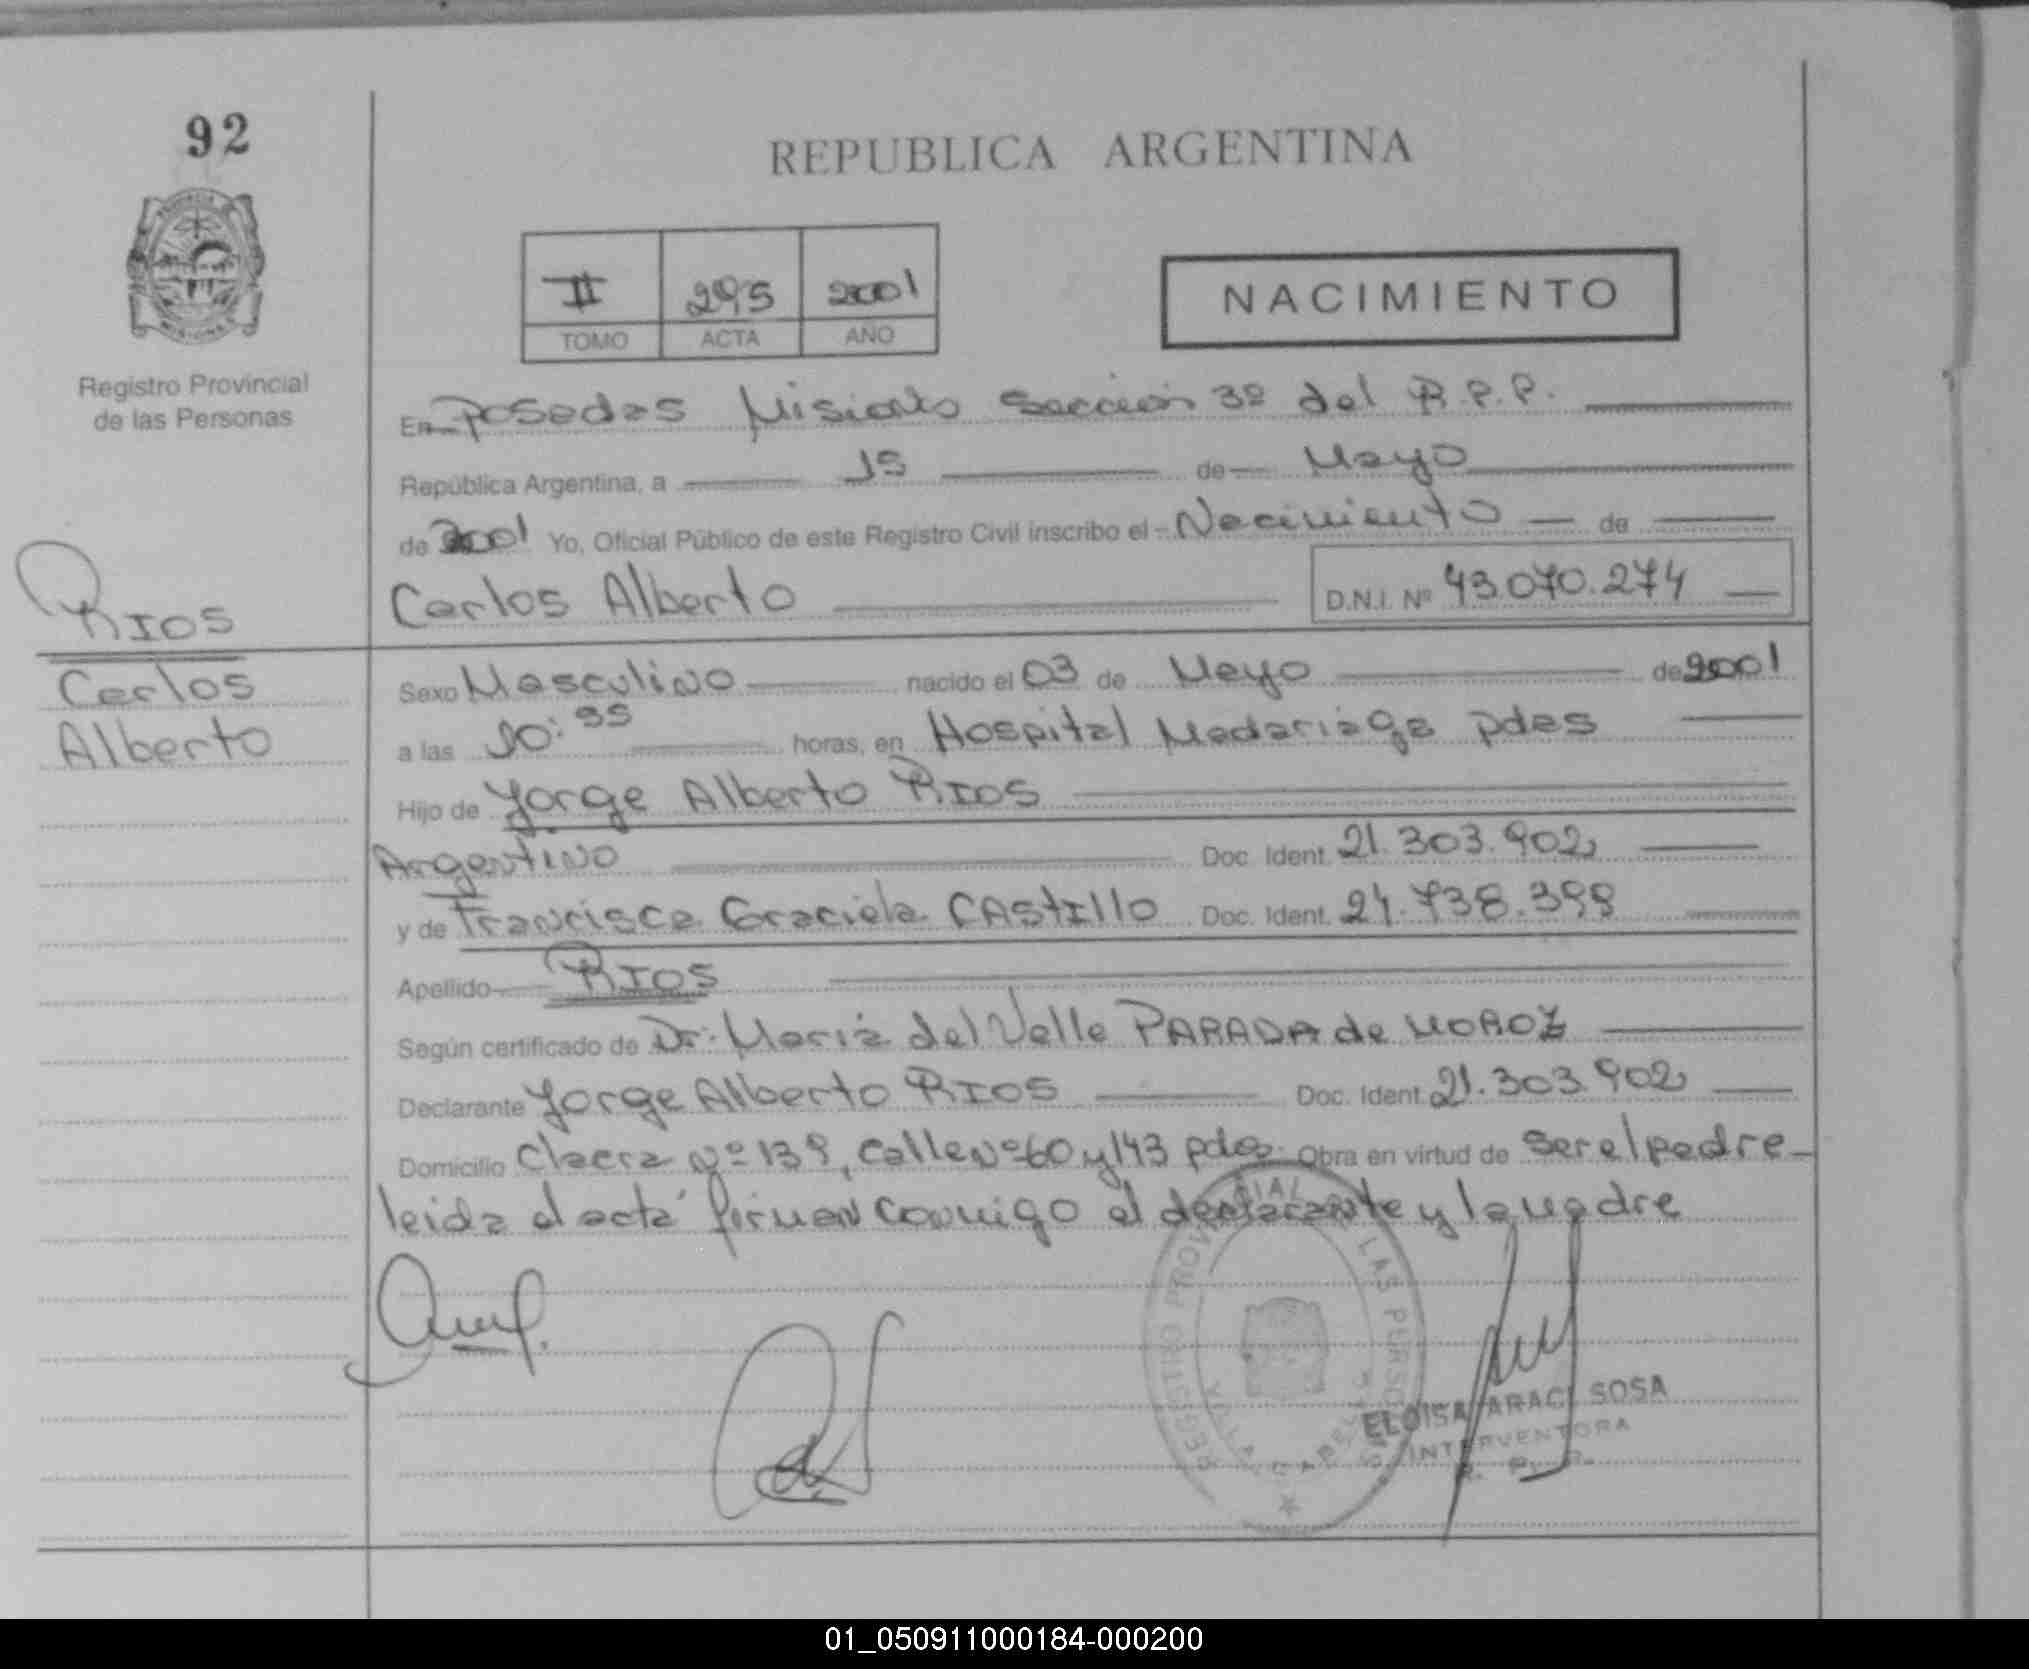 92
REPUBLICA ARGENTINA
II 295 2001
TOMO ACTA AÑO
NACIMIENTO
Registro Provincial
de las Personas
En Posadas Misiones Sección 3º del R.P.P.
República Argentina, a 15 de Mayo
de 2001 Yo, Oficial Público de este Registro Civil inscribo el Nacimiento de
Carlos Alberto D.N.I. Nº 43.070.274
RIOS
Carlos
Alberto
Sexo Masculino nacido el 03 de Mayo de 2001
a las horas, en Hospital Madariaga pdas
Hijo de Jorge Alberto RIOS
Argentino Doc. Ident. 21.303.902
y de Francisca Graciela CASTILLO Doc. Ident. 24.738.398
Apellido RIOS
Según certificado de Dr: María del Valle PARADA de MOROZ
Declarante Jorge Alberto RIOS Doc. Ident. 21.303.902
Domicilio Chacra Nº 139, calle Nº 60 y 143 pdas Obra en virtud de ser el padre
leida el acta firman conmigo el declarante y la madre
REGISTRO PROVINCIAL LAS PERSO
VILLA CABELLO
ELOISA ARACI SOSA
INTERVENTORA
R. P. P.
01_050911000184-000200